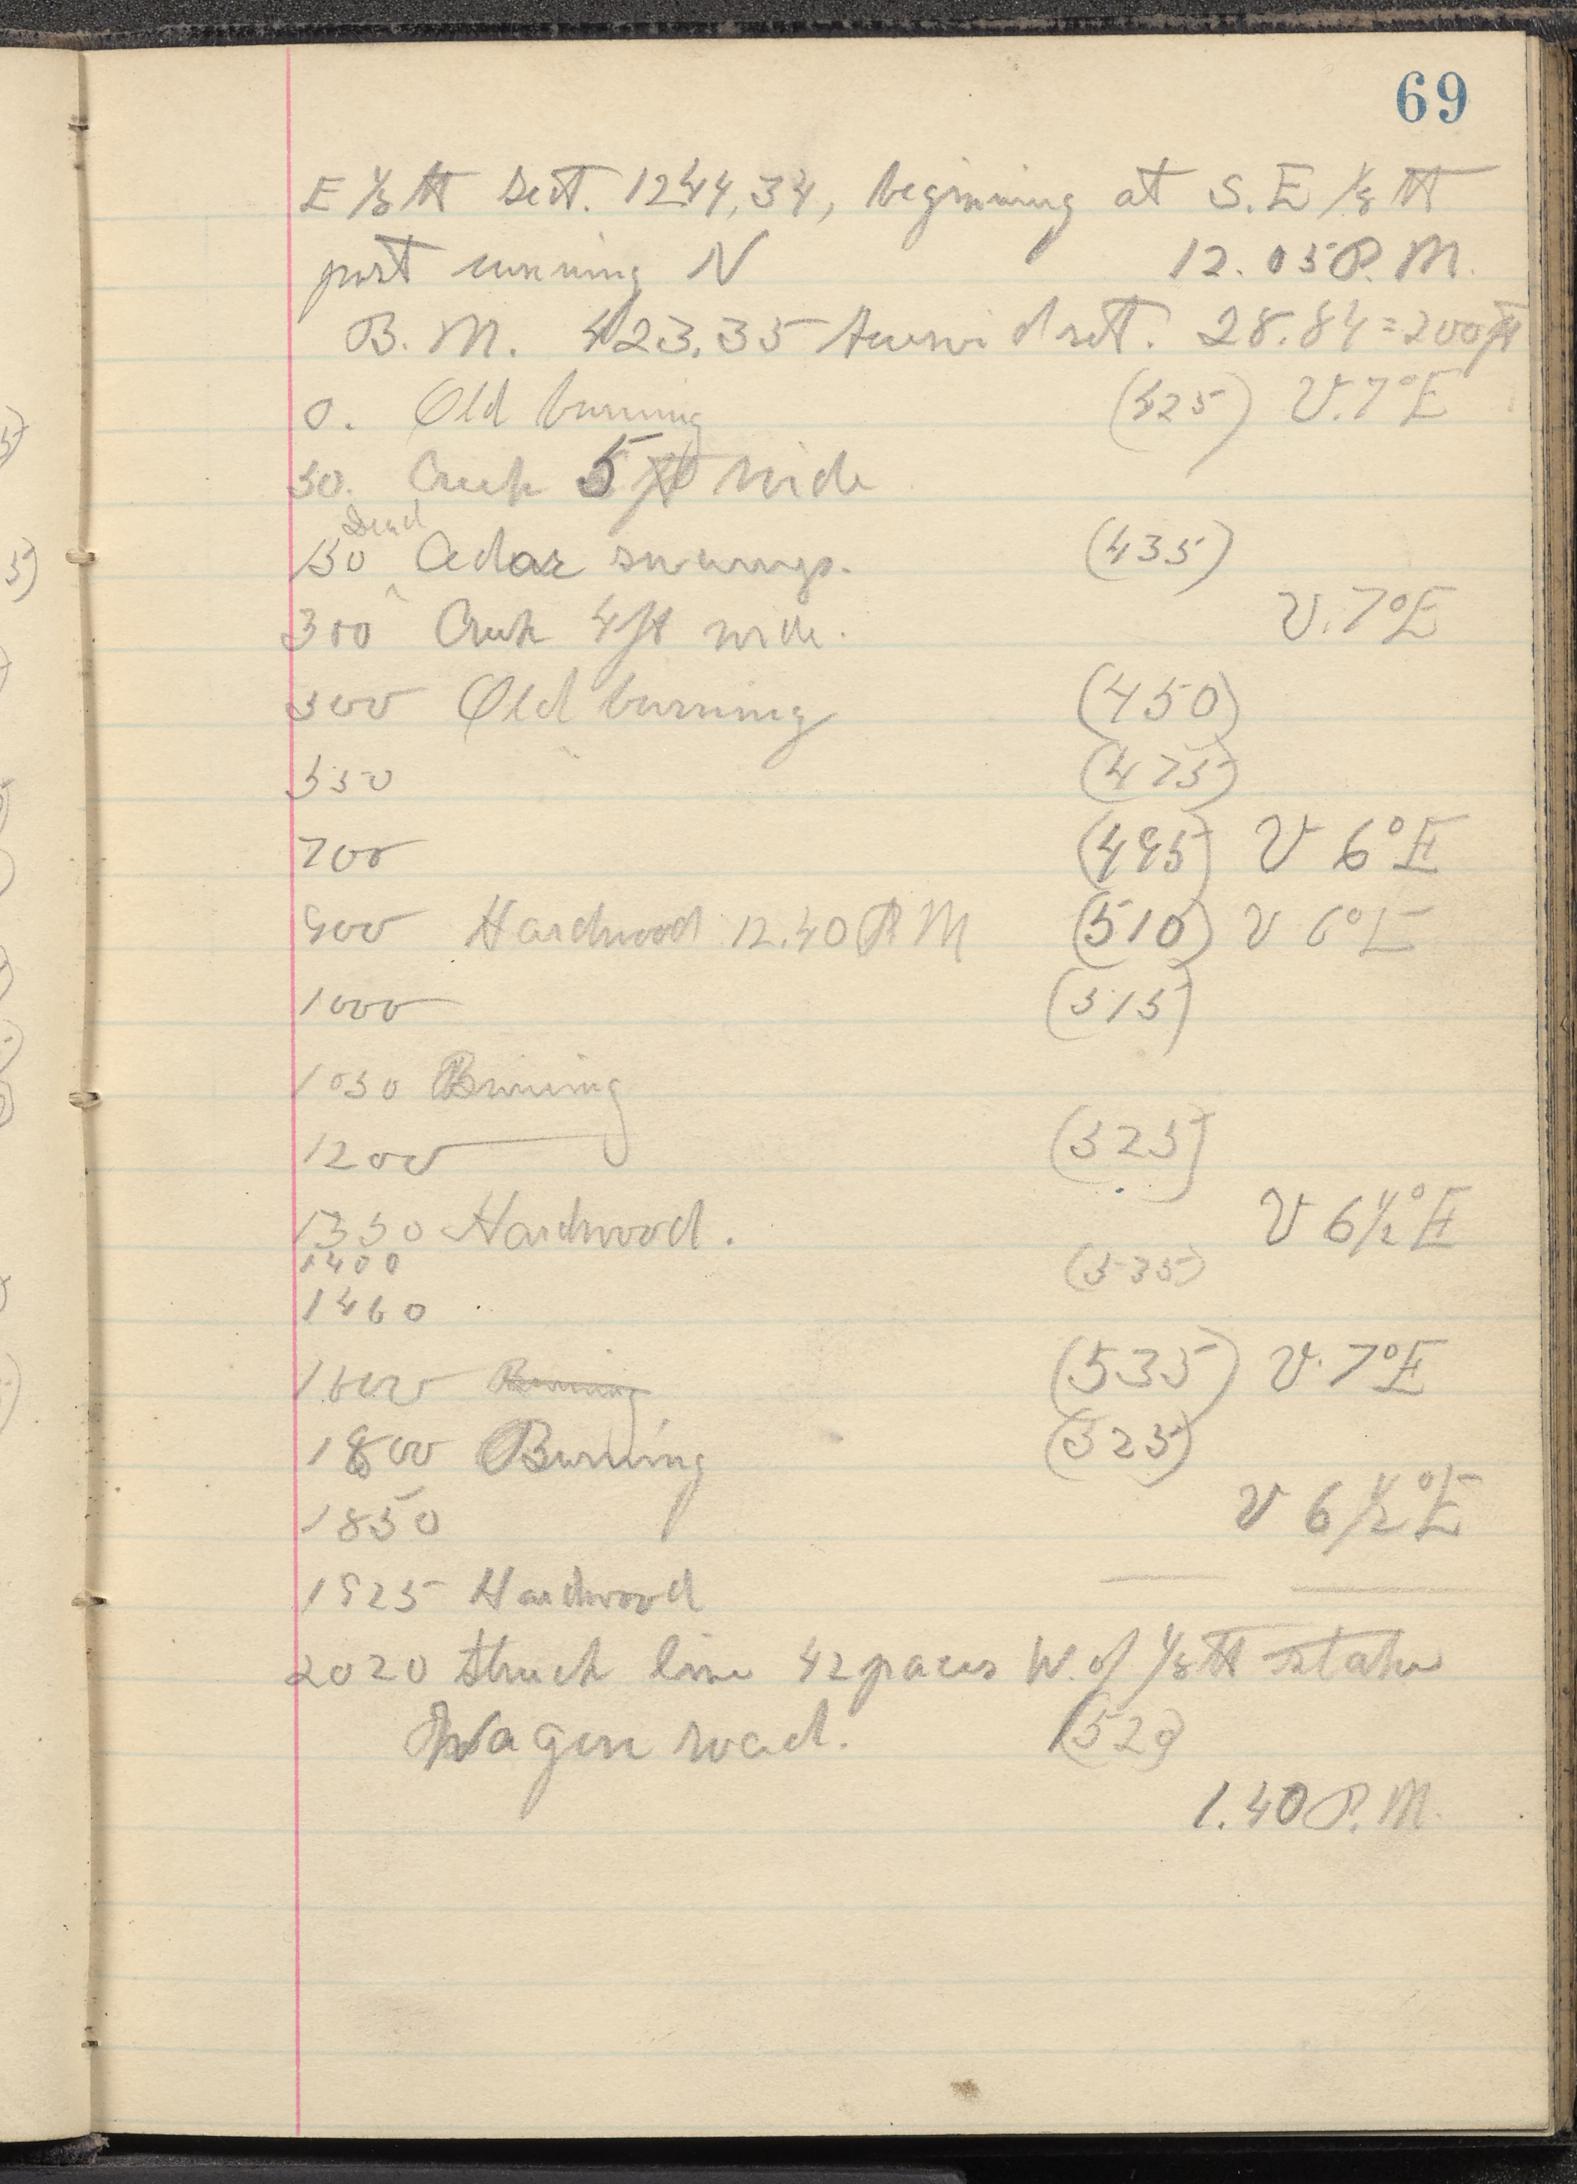 69
E 1/8 tt Sect. 12 44, 34, beginning at S. E 1/8 tt
post running N 12.05 P. M.
B. M. 423.35 Aneroid set. 28.84 = 200 ft
0. Old burning (425) V. 7° E
50. Creek 5 ft wide
Dead
150 Cedar swamp. (435)
300 Creek 4 ft wide. V. 7° E
300 Old burning (450)
550 (475)
700 (495) V 6° E
900 Hardwood 12.40 P. M (510) V 6° E
1000 (515)
1050 Burning
1200 (525)
1350 Hardwood. V 6 1/2° E
1400 (535)
1460
1600 Burning (535) V. 7° E
1800 Burning (525)
1850 V 6 1/2° E
1925 Hardwood
2020 Struck line 42 paces W. of 1/8 tt stake
Wagon road.
1.40 P. M.